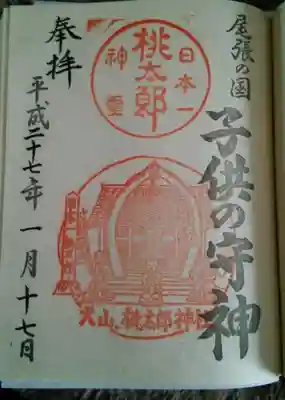 尾張の国
子供の守神
日本一
桃太郎
神霊
犬山 桃太郎神社
奉拝
平成二十七年一月十七日